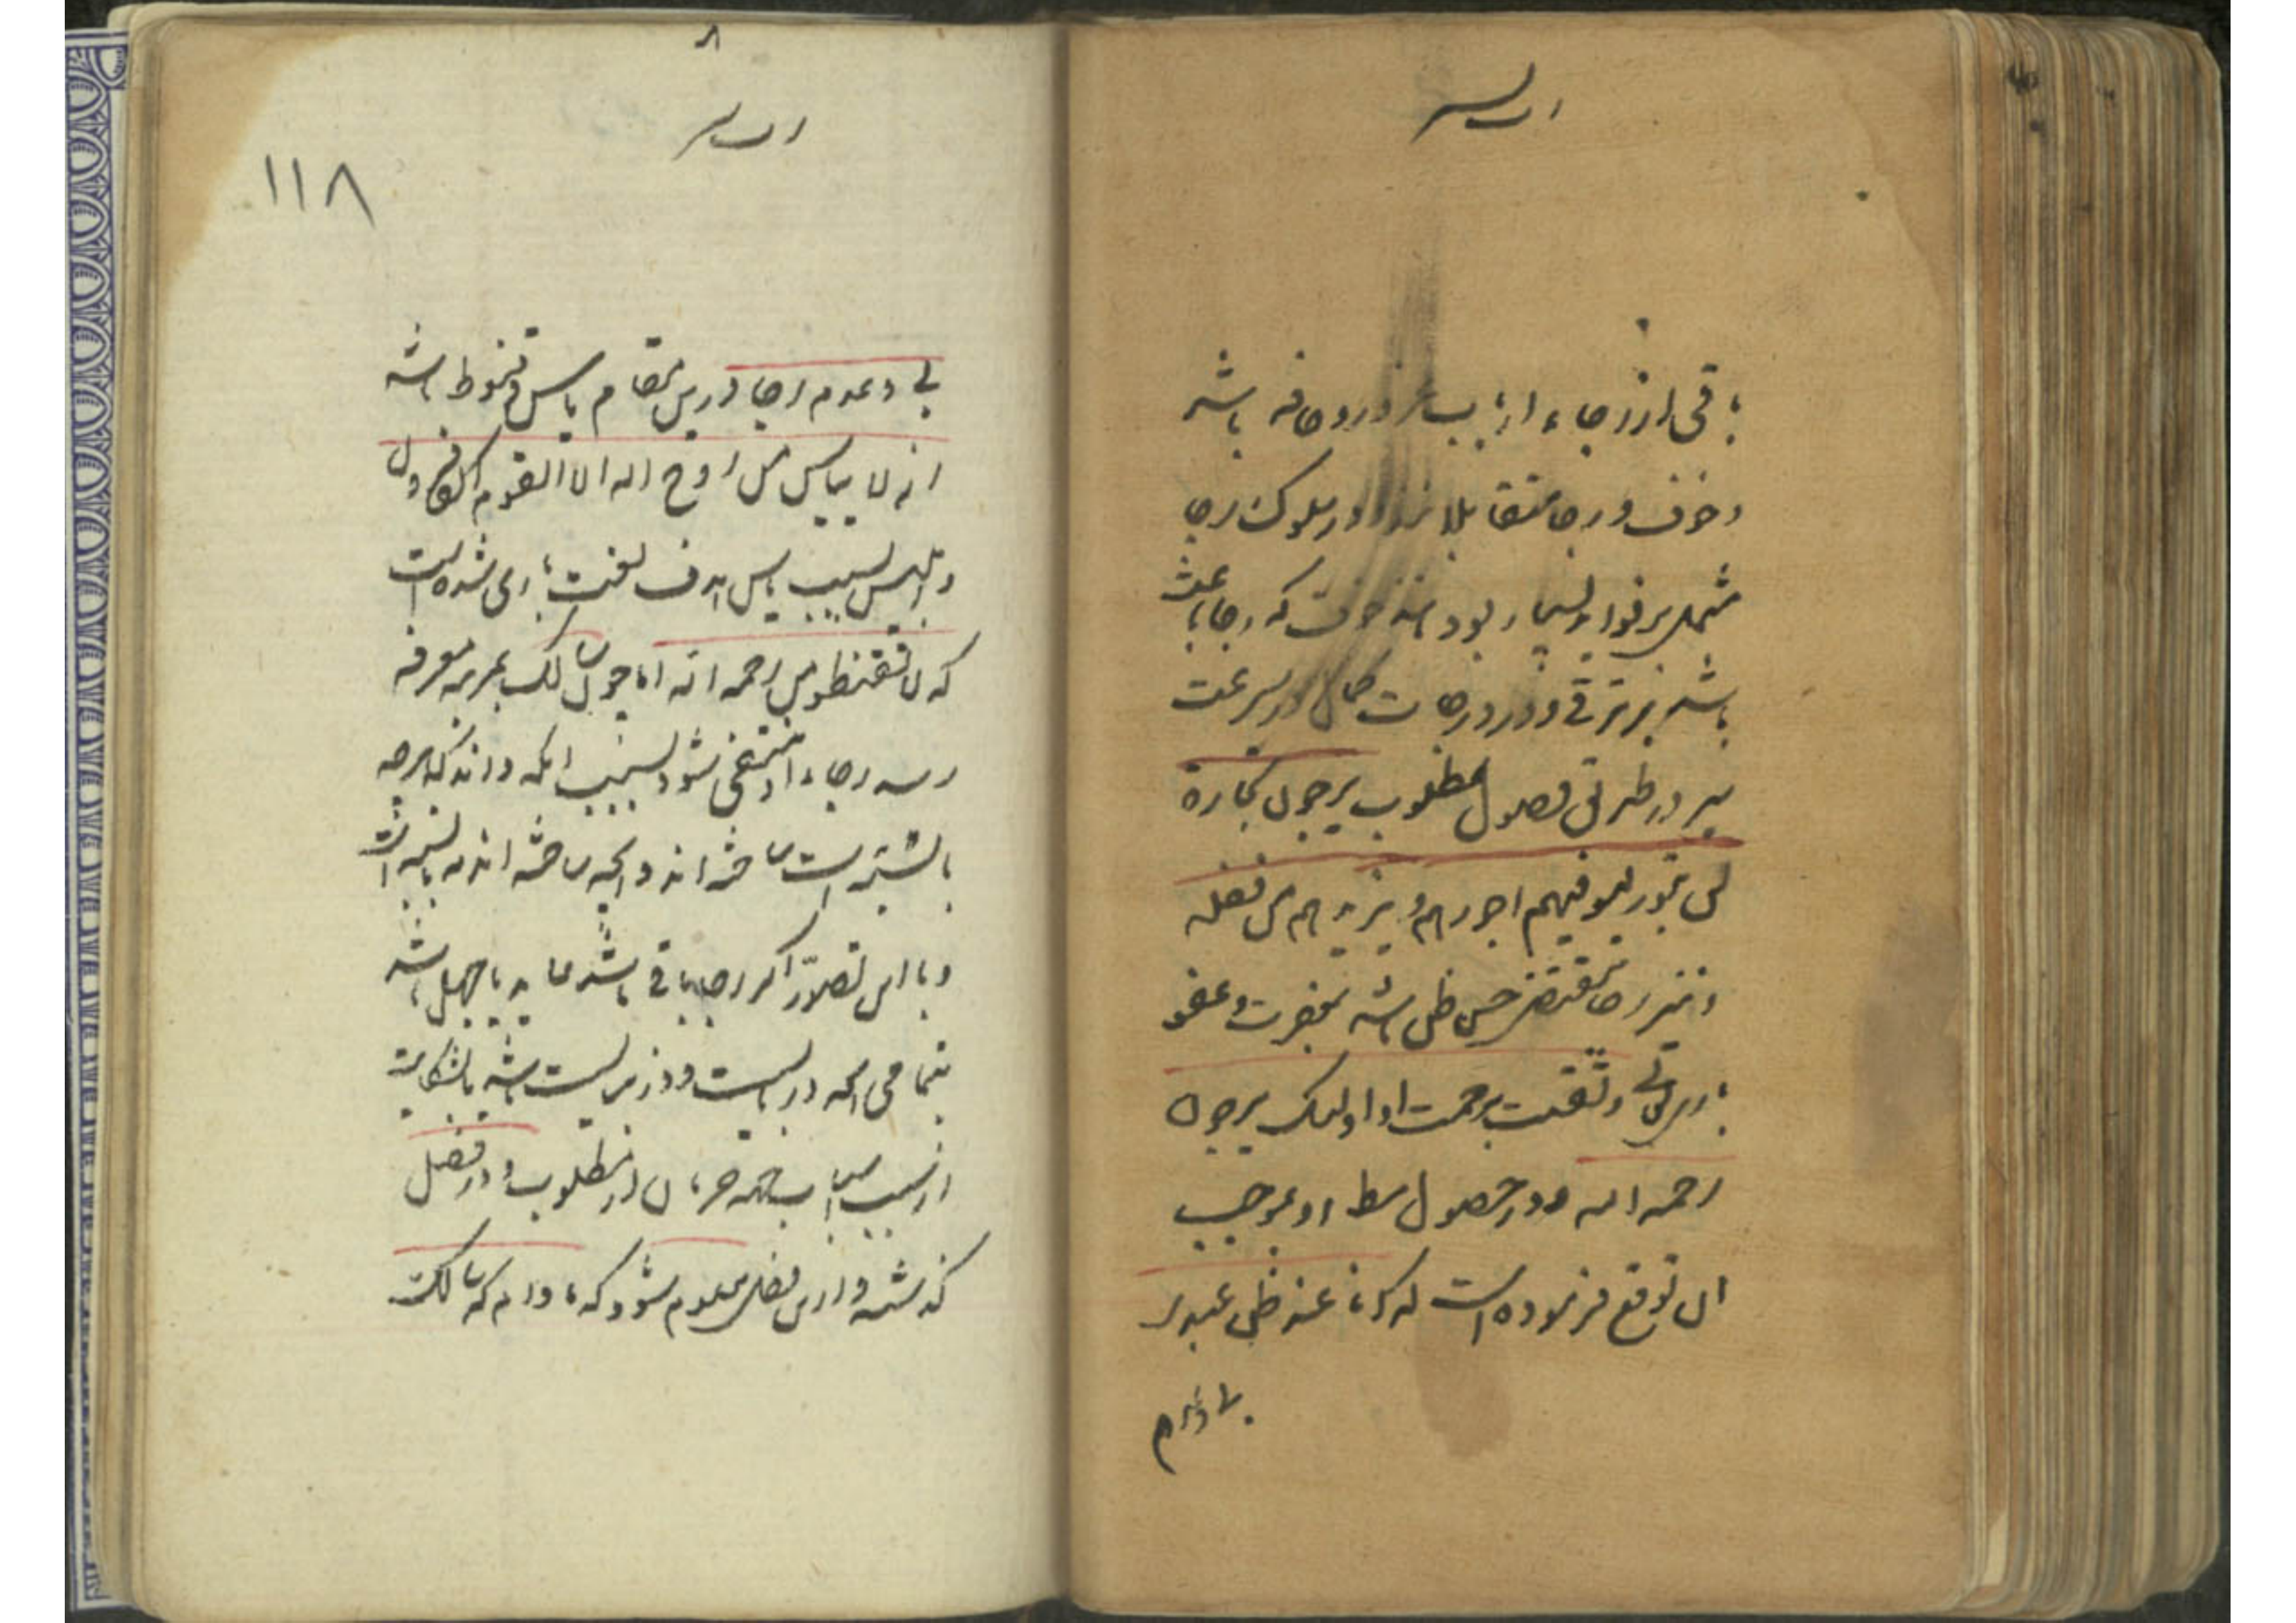 باقی از رجاء از باب غرور و حماقه باشد
و خوف و رجا متقابلانند و در سلوک رجا
مشتمل بر فواید بسیار بود مانند خوف که رجا باعث
باشد بر ترقی در درجات کمال و سرعت
سیر در طریق وصول مطلوب یرجون تجارة
لن تبور لیوفیهم اجورهم و یزیدهم من فضله
و نیز رجا مقتضی حسن ظن باشد بمغفرت و عفو
باری تعالی و ثقت برحمت او اولئک یرجون
رحمه الله و در حصول او بموجب
ان توقع فرموده است که انا عند ظن عبدی
بی و عدم
۱۱۸
بی و عدم رجا درین مقام یاس و قنوط باشد
انه لا ییاس من روح الله الا القوم الکافرون
و ابلیس بسبب یاس هدف لعنت باری شده است
که لا تقنطوا من رحمه الله اما چون سالک بمرتبه معرفه
رسد رجاء او منتفی شود بسبب انکه داند که هرچه
بایستی است ساخته‌اند و انچه ساخته‌اند نه بایسته است
و با این تصور اگر رجا باقی باشد عاید با جهل باشد
بتمامی انچه دربایست و درنبایست باشد یا شکایت
از سبب اسباب جهة حرمان از مطلوب و در فصل
گذشته و ازین فصل معلوم شود که مادام که سالک